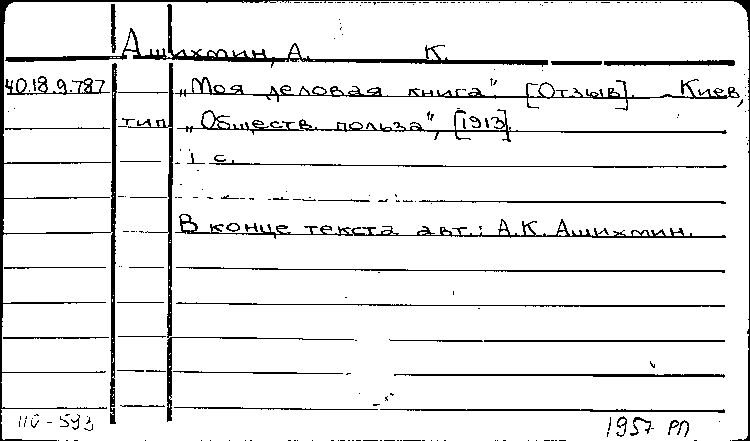 Ашихмин, А. К.
40.18.9.787 „Моя деловая книга". [Отзыв]. Киев,
тип. „Обществ. польза", [1913].
1 с.
В конце текста авт.: А.К. Ашихмин.
110-593 1957 РП